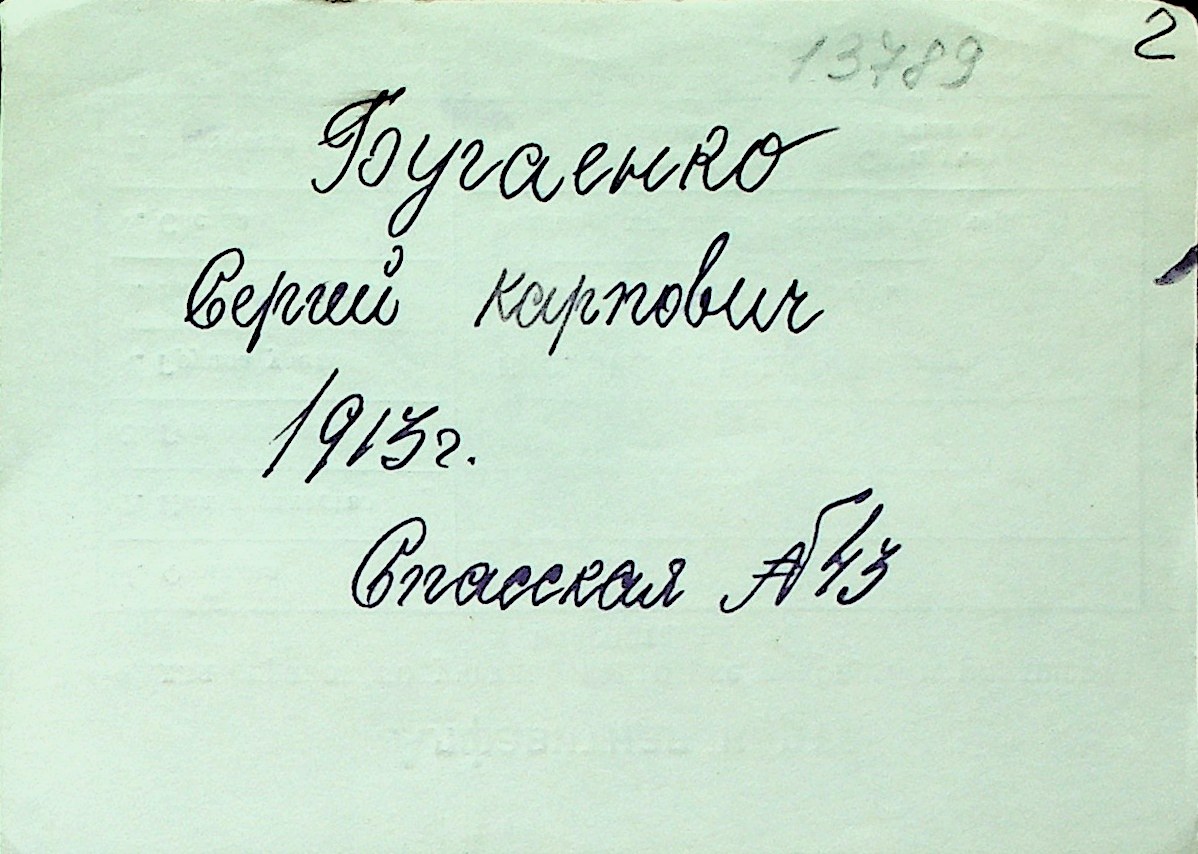 2
13789
Бугаенко
Сергей карпович
1913г.
Спасская №43